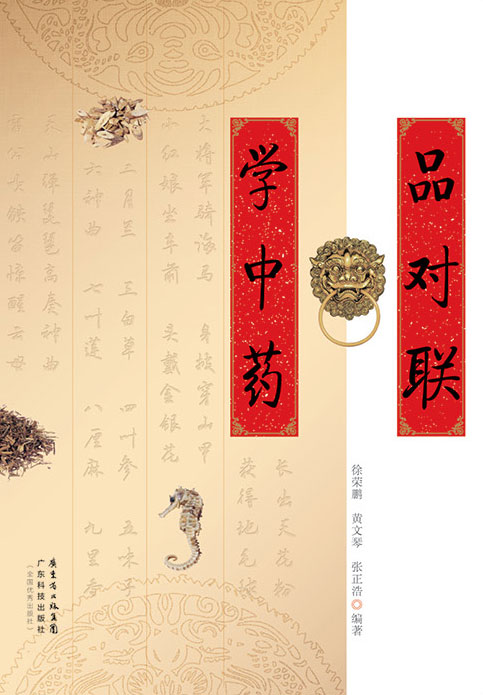 品对联
学中药
徐荣鹏 黄文琴 张正浩 ◎ 编著
大将军骑海马 身披穿山甲
小红娘坐车前 头戴金银花
二月兰 三白草 四叶参 五味子
六神曲 七叶莲 八厘麻 九里香
天山弹琵琶高奏神曲
广东省出版集团
广东科技出版社
(全国优秀出版社)